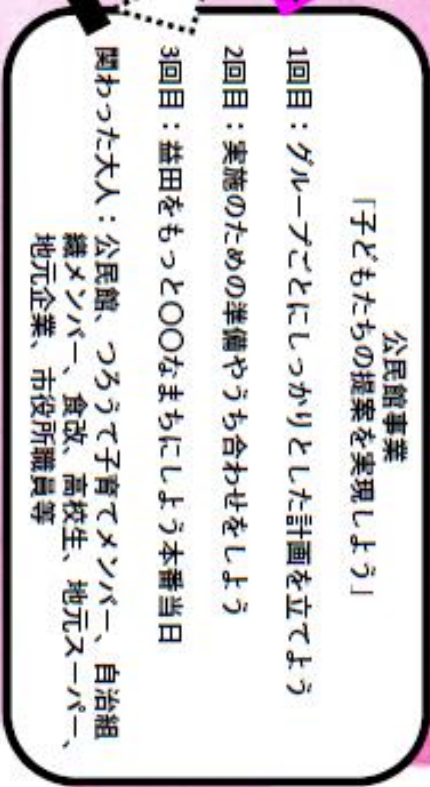 公民館事業
「子どもたちの提案を実現しよう」
1回目：グループごとにしっかりとした計画を立てよう
2回目：実施のための準備やうち合わせをしよう
3回目：益田をもっと〇〇なまちにしよう本番当日
関わった大人：公民館、つろうて子育てメンバー、自治組
織メンバー、食改、高校生、地元スーパー、
地元企業、市役所職員等